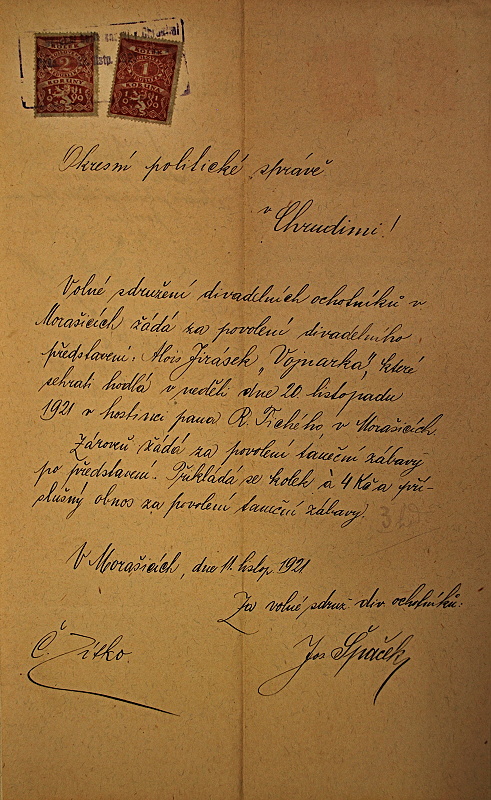 KOLEK
2
KORUNY
KOLEK
1
KORUNA
Okresní politické správě
v
Chrudimi!
Volné sdružení divadelních ochotníků v
Morašicích žádá za povolení divadelního
představení: Alois Jirásek „Vojnarka“, které
sehrati hodlá v neděli dne 20 listopadu
1921 v hostinci pana R. Tichého v Morašicích.
Zároveň žádá za povolení taneční zábavy
po představení. Přikládá se kolek à 4 Kč a pří-
slušný obnos za povolení taneční zábavy.
V Morašicích, dne 11. listop. 1921
Za volné sdruž. div. ochotníků:
Č. Zítko.
Jos Špaček